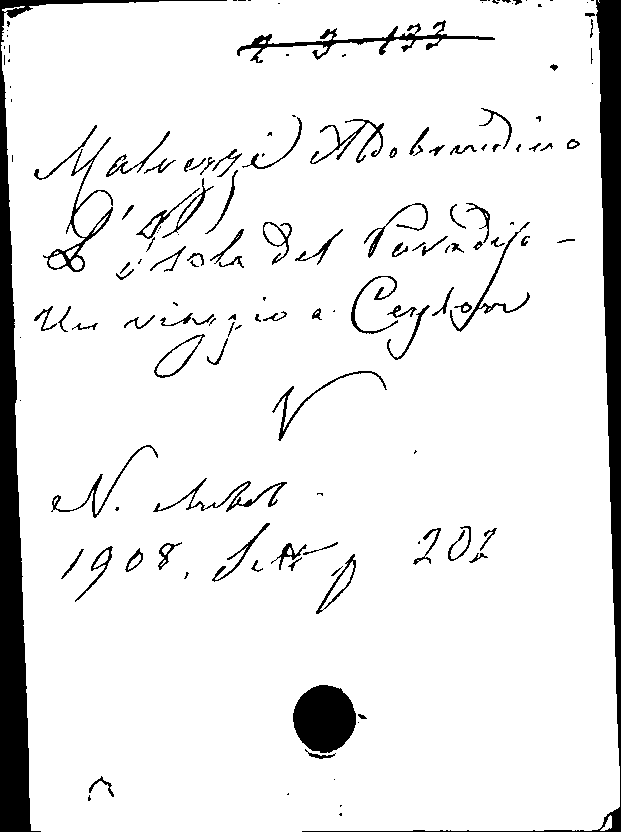 2. 3. 133
Malvezzi Aldobrandino
L'isola del Paradiso -
Un viaggio a Ceylon
V
N. Antol.
1908. Sett p 202